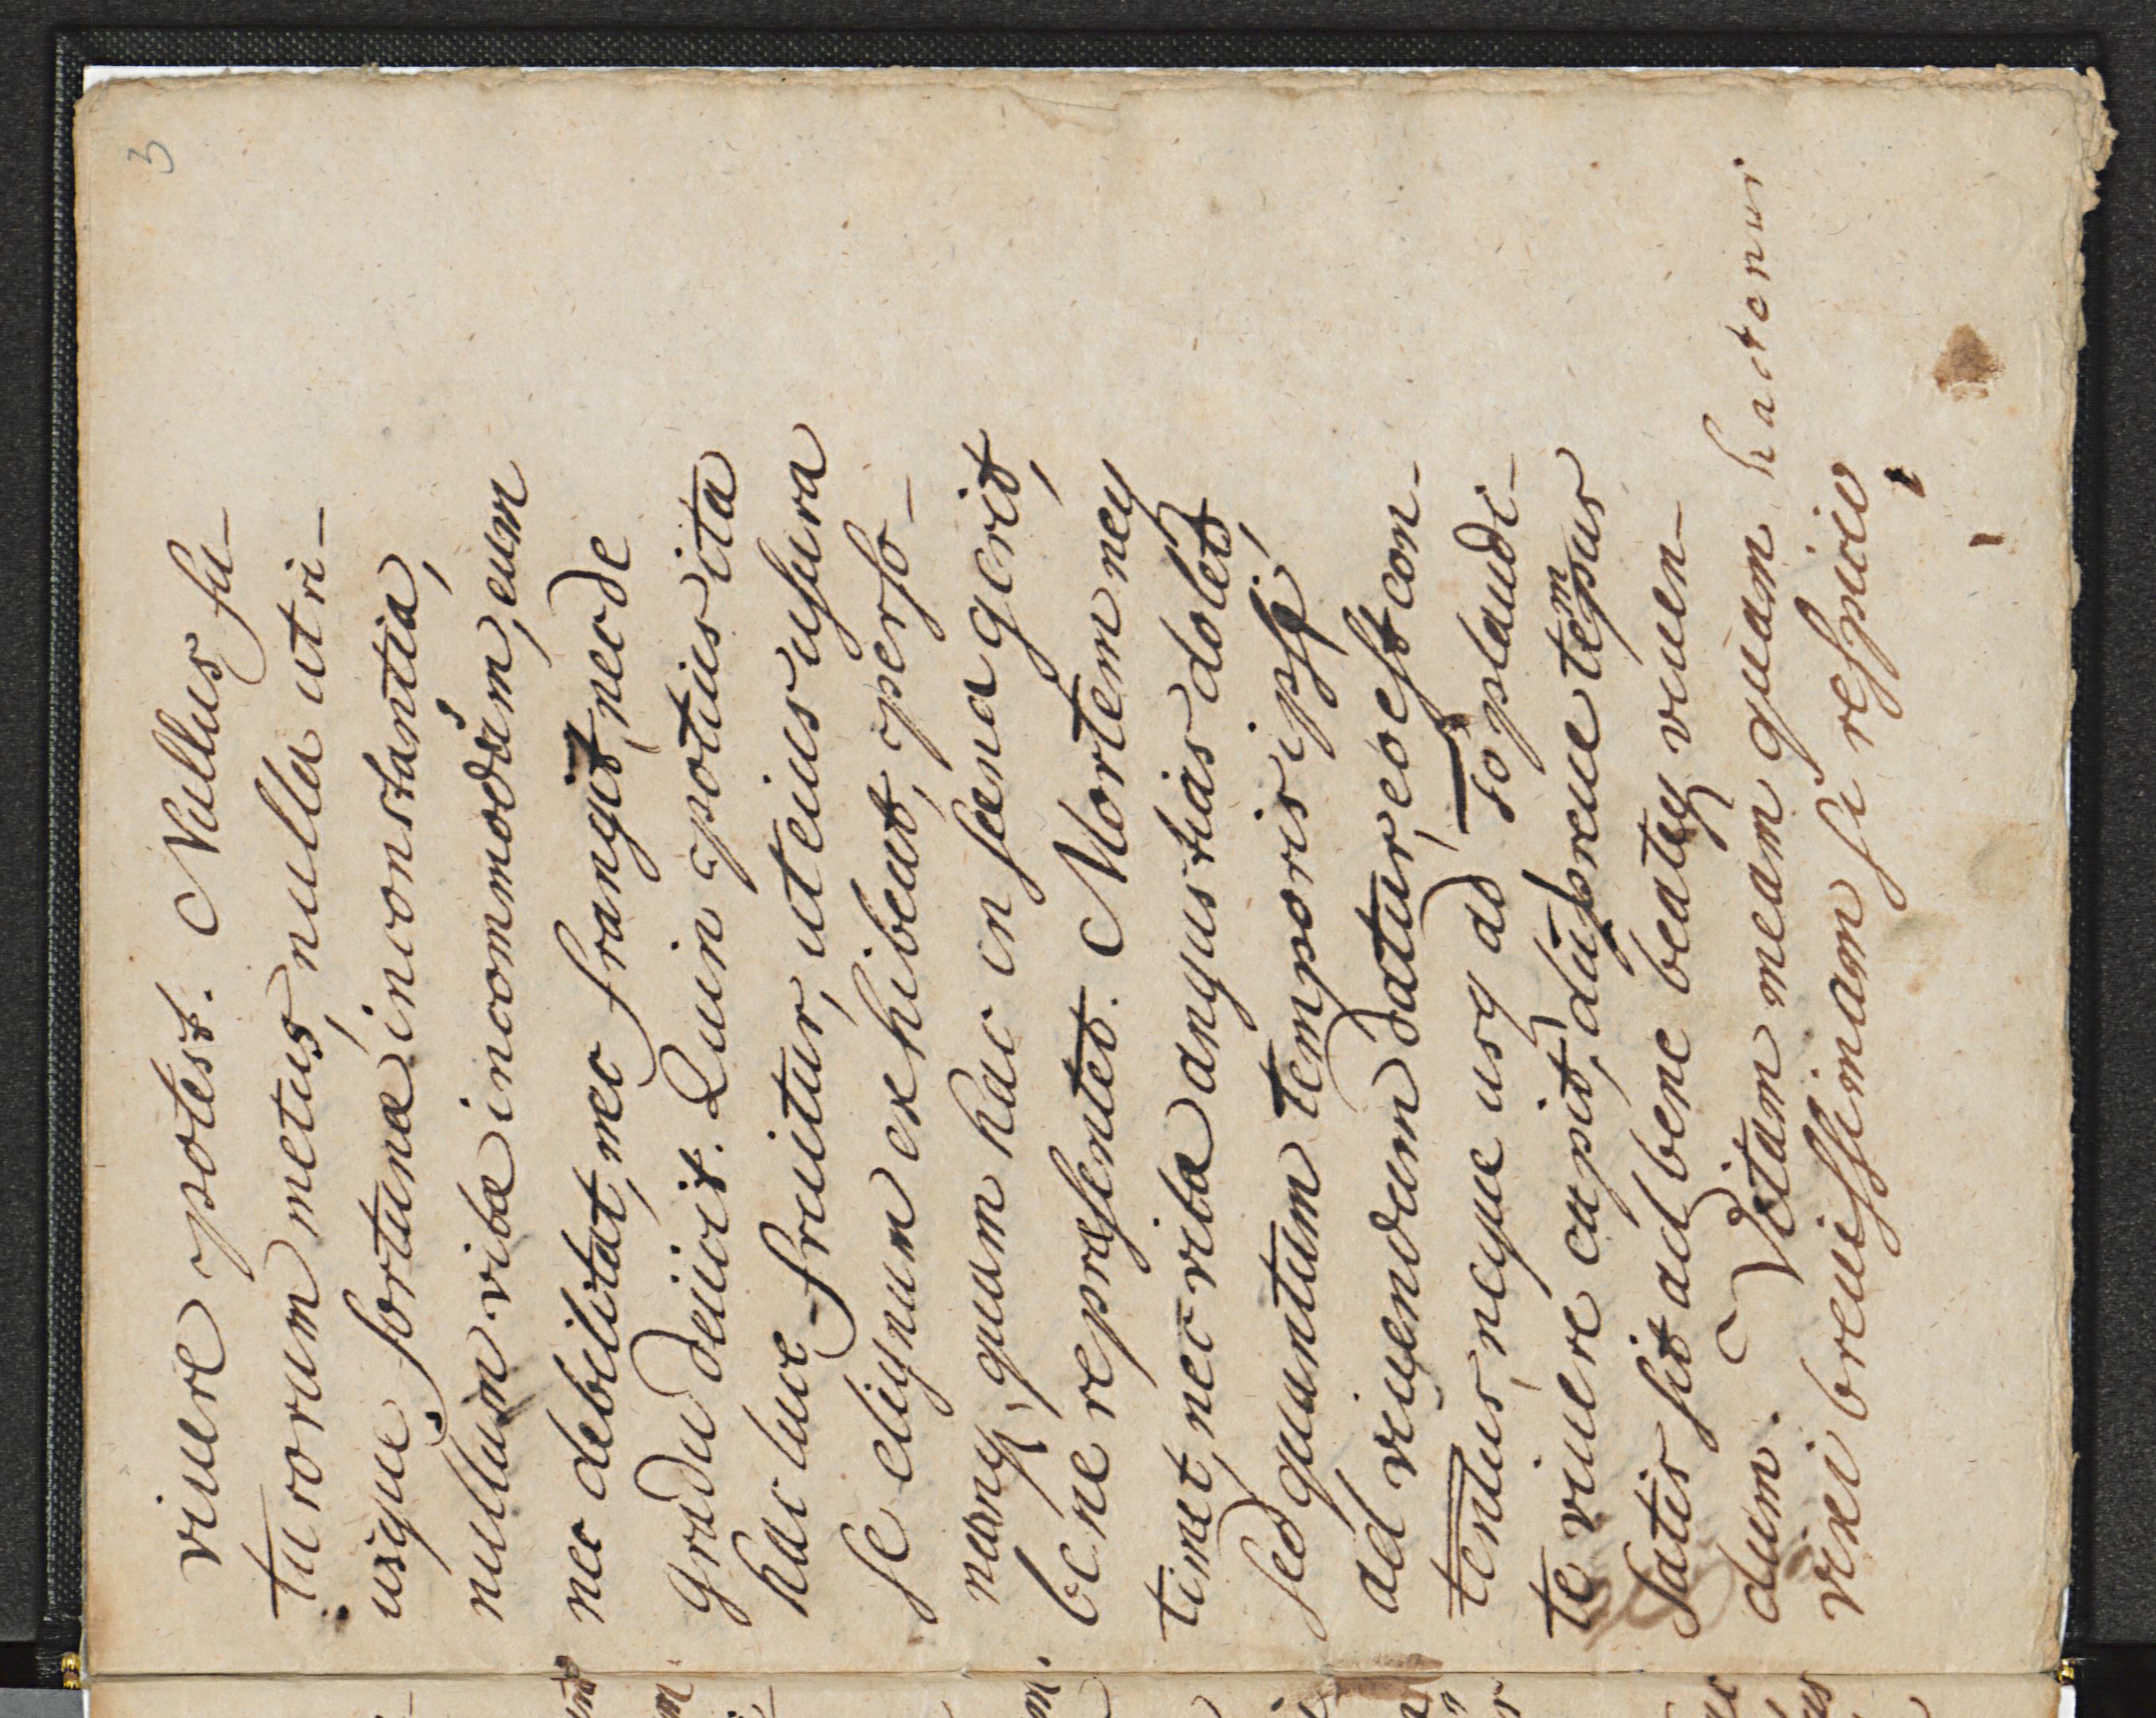 3
viuere potest. Nullus fu-
turorum metus, nulla utri-
usque fortunæ inconstantia,
nullum vitæ incommodum, eum
nec debilitat, nec frangit, nec de
gradu deiicit. Quin potius ita
hac luce fruitur, ut eius usura
se dignum exhibeat, perso-
namq, quam hac in scena gerit,
bene repræsentet. Mortem neq
timet, nec vitæ angustias dolet,
sed quantum temporis ipsi
ad viuendum datur, eo est con-
tentus, neque usq ad To plaudi-
te viuere cupit, dum breue tempus
satis sit ad bene beateq viuen-
dum. Vitam meam quam hactenus
vixi breuissimam si respicio,